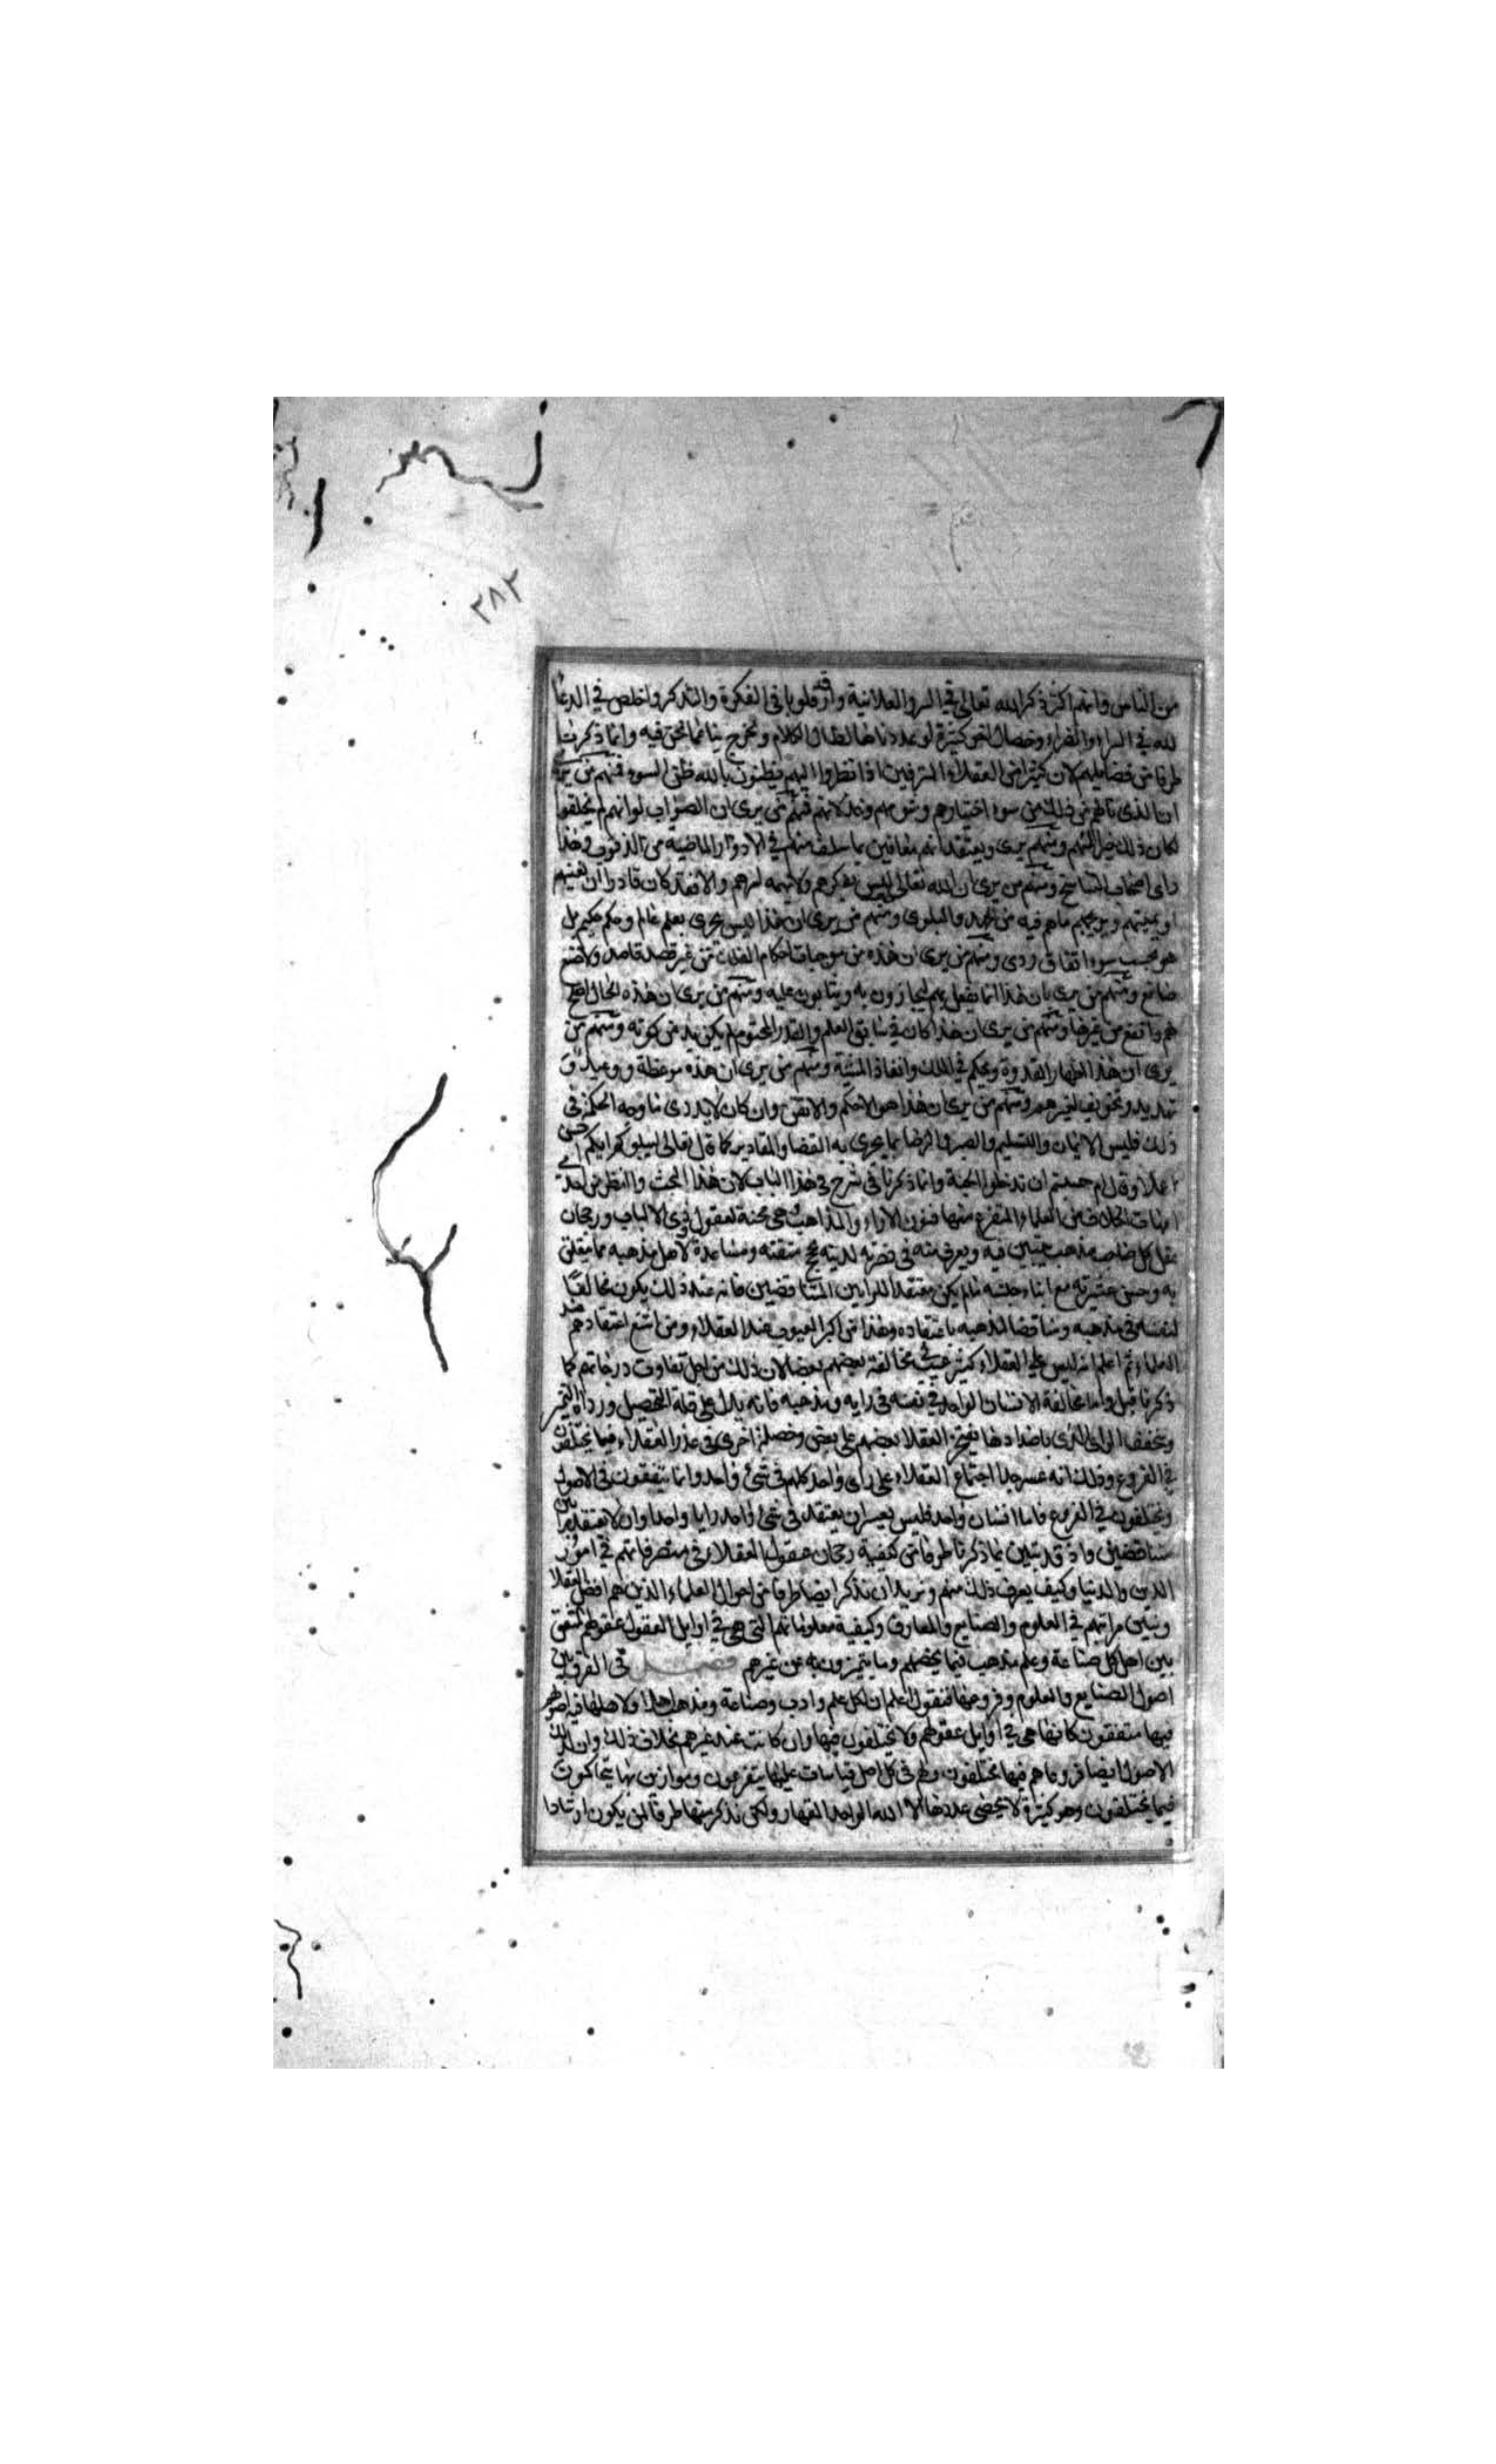 ٢٨٢
من الناس وانهم اكثر ذكرا لله تعالى في السر والعلانية وارق قلوبا في الفكرة والتذكر واخلص في الدعا
لله في السراء والضراء وخصال اخر كثيرة لو عددناها لطال الكلام ونخرج بنا عما نحن فيه وانما ذكرنا
طرفا من فضايلهم لان كثيرا من العقلاء المترفين اذا نظروا اليهم يظنون بالله ظن السوء فمنهم من يرى
ان الذى نالهم من ذلك من سوء اختيارهم وشومهم وخذلانهم فمنهم من يرى ان الصواب لو انهم لم يخلقوا
لكان ذلك خيرا لهم ومنهم يرى ويعتقد انهم معاقبين بما سلف منهم في الادوار الماضية من الذنوب وهذا
راى اصحاب التناسخ ومنهم من يرى ان الله تعالى ليس يفكرهم ولا يهمه امرهم والا فقد كان قادرا ان يغنيهم
او يميتهم ويريحهم مما هم فيه من الجهد والبلوى ومنهم من يرى ان هذا ليس يجرى بعلم عالم وحكم حكيم بل
هو بحسب سوء اتفاق ردى ومنهم من يرى ان هذه من موجبات احكام الفلك من غير قصد قاصد ولا صنع
صانع ومنهم من يرى بان هذا انما يفعل بهم ليجازون به ويثابون عليه ومنهم من يرى ان هذه الحال اصلح
لهم وانفع من غيرها ومنهم من يرى ان هذا كان في سابق العلم والقدر المحتوم لم يكن بد من كونه ومنهم من
يرى ان هذا اظهار القدرة وتحكم في الملك وانفاذ المشية ومنهم من يرى ان هذه موعظة ووعيد و
تهديد وتخويف لغيرهم ومنهم من يرى ان هذا هو الاحكم والاتقن وان كان لا يدرى ما وجه الحكمة في
ذلك فليس الا الايمان والتسليم والصبر والرضا بما يجرى به القضا والمقادير كما قال تعالى ليبلوكم ايكم احسن
عملا وقال ام حسبتم ان تدخلوا الجنة وانما ذكرنا في شرح في هذا الباب لان هذا البحث والنظر من احد
امهات الخلاف بين العلماء المتفرع منها فنون الاراء والمذاهب وهي محنة لعقول ذوى الالباب ورجحان
عقل كل صاحب مذهب يتبين فيه ويعرف منه في نصرته لدينه بحجج متقنة ومساعدة لاهل مذهبه مما يتعلق
به وحسن عشرته مع ابناء جنسه مالم يكن معتقدا للرايين المتناقضين فانه عند ذلك يكون مخالفا
لنفسه في مذهبه ومناقضا لمذهبه باعتقاده وهذا من اكبر العيوب عند العقلاء ومن اشنع اعتقادهم عند
العلماء ثم اعلم انه ليس على العقلاء كثير عيب في مخالفة بعضهم بعضا لان ذلك من اجل تفاوت درجاتهم كما
ذكرنا قبل واما مخالفة الانسان الواحد في نفسه في رايه ومذهبه فانه يدل على قلة التحصيل ورداة التمييز
وسخف الراى الذى باضدادها يفتخر العقلا بعضهم على بعض وخصلة اخرى في عذر العقلاء فيما يختلفون
في الفروع وذلك انه عسر جدا اجتماع العقلاء على راى واحد كلهم في شئ واحد وانما يتفقون في الاصول
ويختلفون في الفروع فاما انسان واحد فليس بعسر ان يعتقد في شئ واحد رايا واحدا وان لا يعتقد رايين
متناقضين واذ قد تبين بما ذكرنا طرفا من كيفية رجحان عقول العقلاء في متصرفاتهم في امور
الدين والدنيا وكيف يعرف ذلك منهم ونريد ان نذكر ايضا طرفا من احوال العلماء الذين هم افضل العقلا
ونبين مراتبهم في العلوم والصنايع والمعارف وكيفية معلوماتهم التى هي في اوايل العقول عقولهم متفق
بين اهل كل صناعة وعلم مذهب فيما يخصهم وما يتميزون به عن غيرهم فصل في الفرق بين
اصول الصنايع والعلوم وفروعها فنقول اعلم ان لكل علم وادب وصناعة ومذهب اهلا ولاهلها فيه اصولهم
فيها متفقون كانها هي في اوايل عقولهم ولا يختلفون فيها وان كانت عند غيرهم بخلاف ذلك وان لتلك
الاصول ايضا فروعا هم فيها مختلفون ولهم في كل اصل قياسات عليها يتفرعون وموازين بها يتحاكمون
فيما يختلفون وهو كثيرة لا يحصى عددها الا الله الواحد القهار ولكن نذكر منها طرفا لمن يكون ارشادا